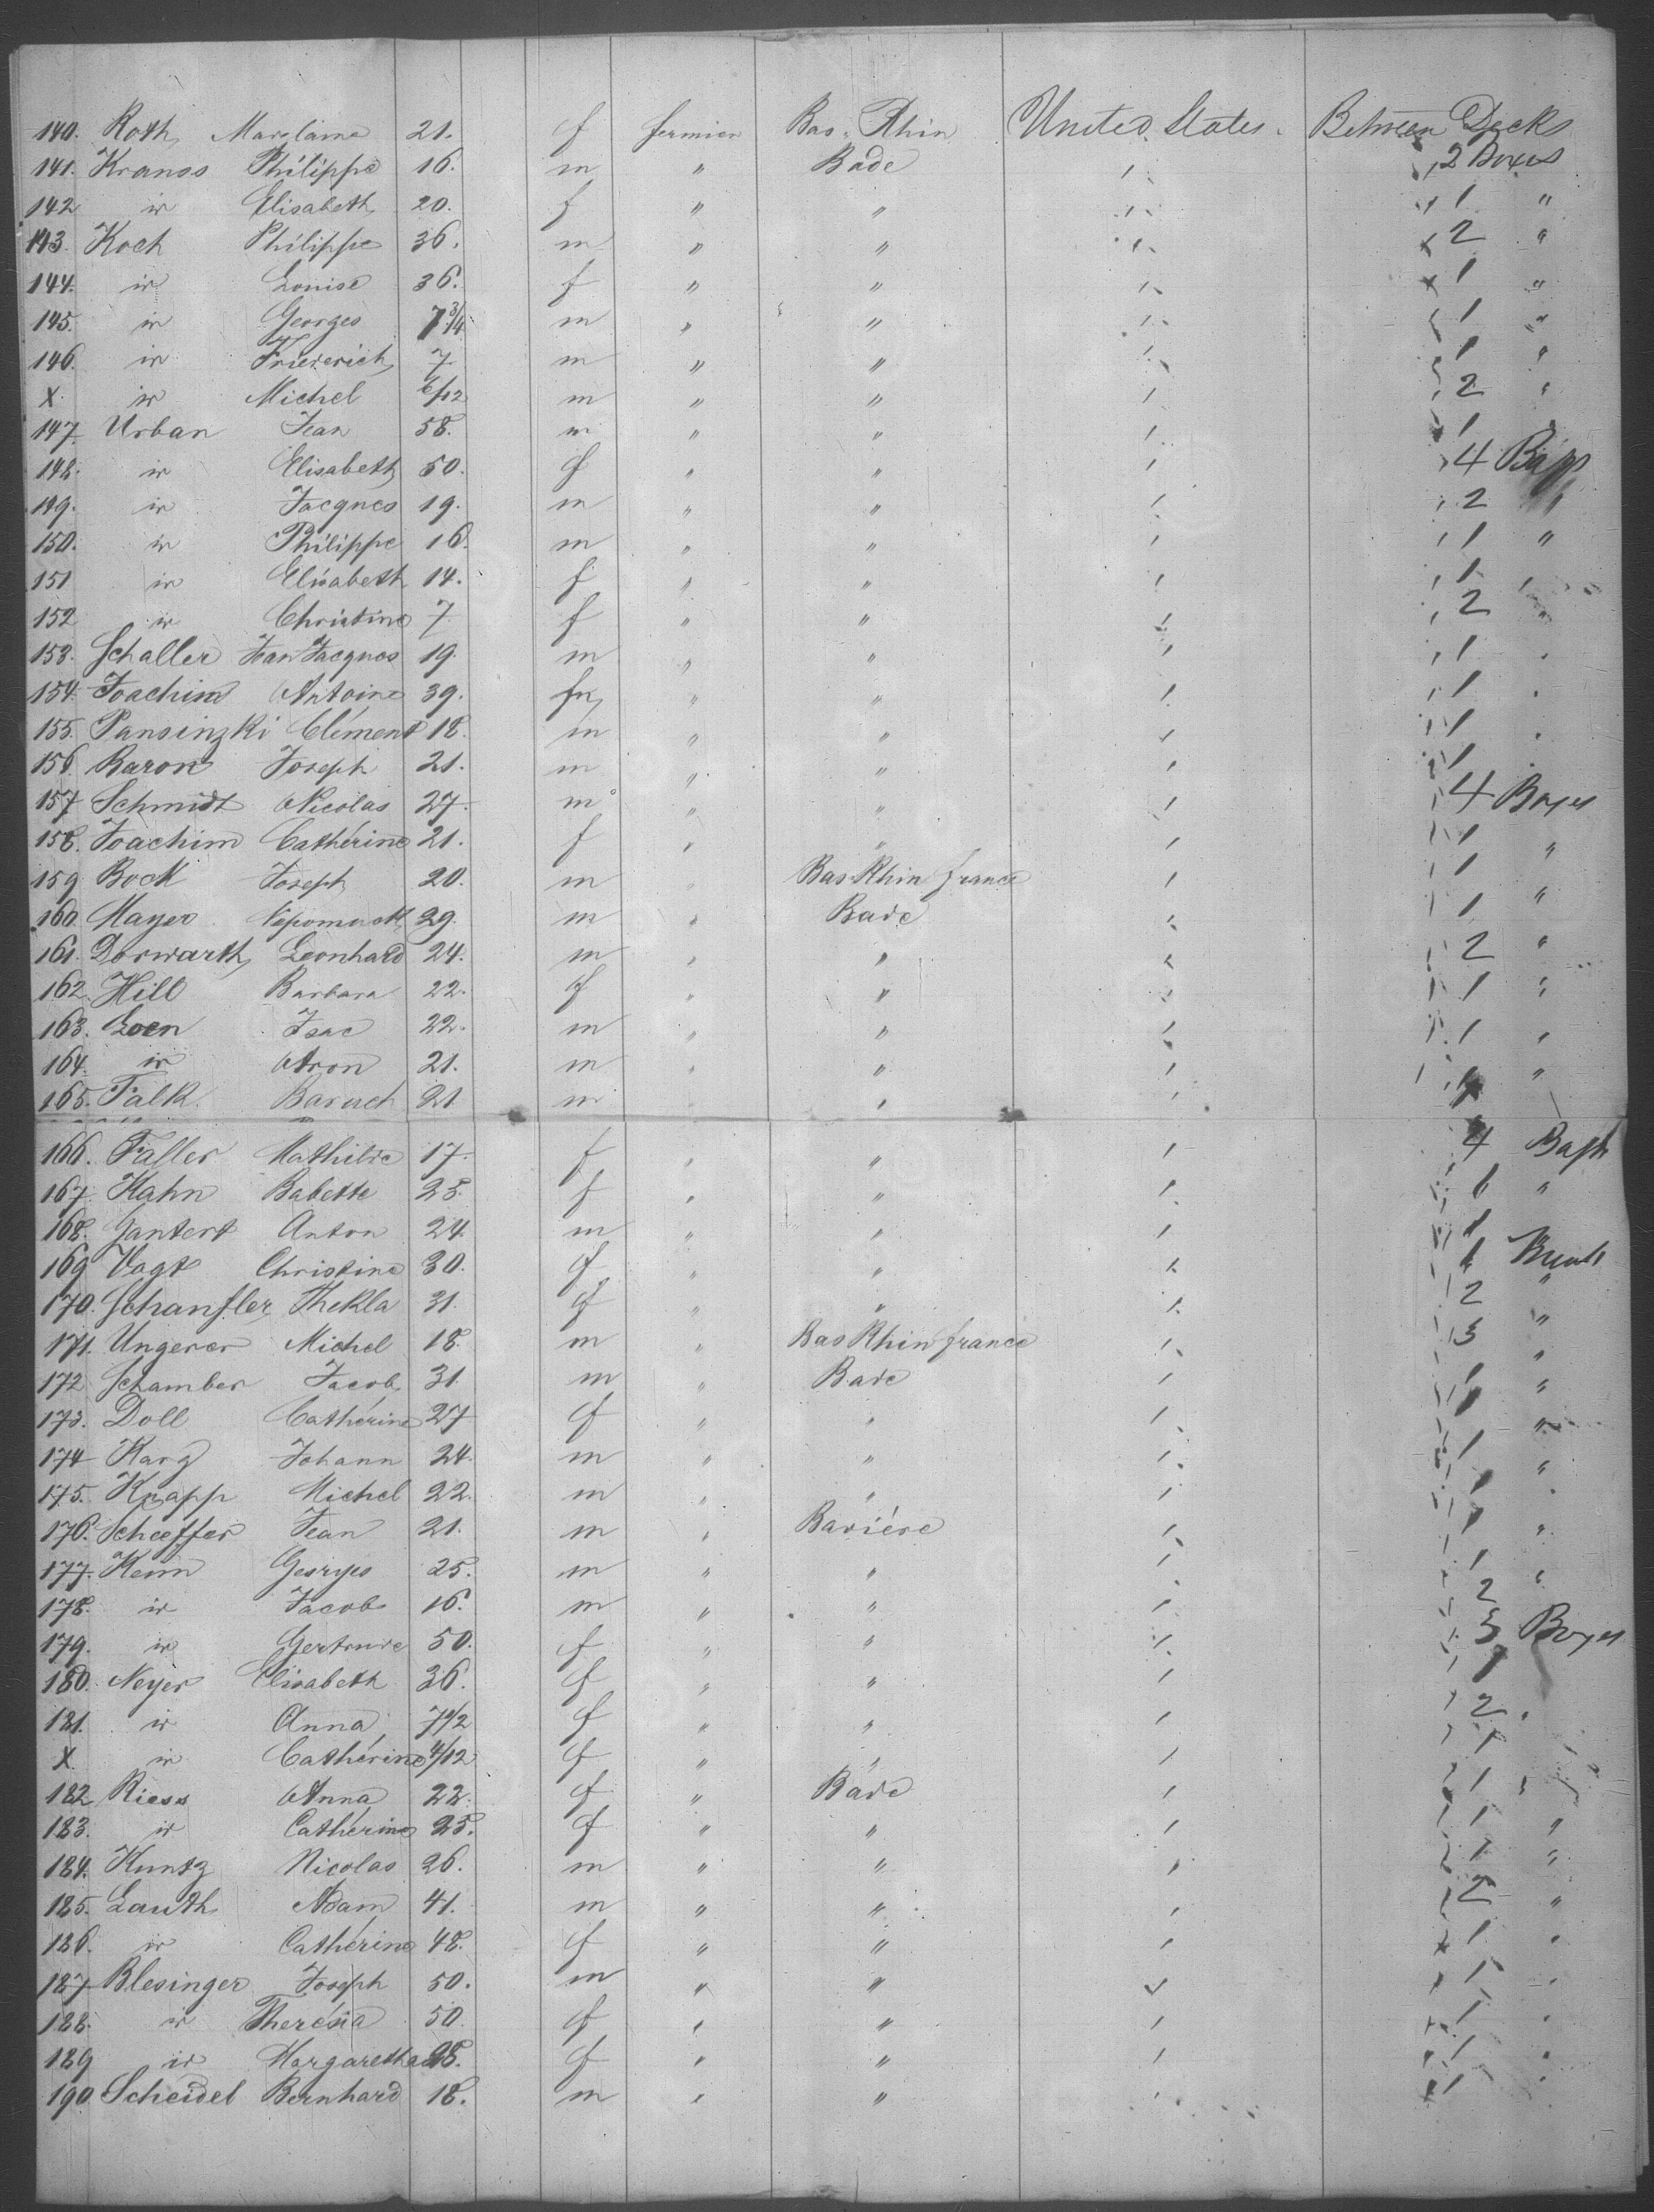 140. Roth, 21. f fermier Bas-Rhin United States. Between Decks
141. Kranss Philippe 16. m " Bade " 2 Boxes
142 id Elisabeth 20. f " " " 1 "
143. Koch Philippe 36. m " " " 2 "
144. id Louise 36. f " " " 1 "
145. id Georges 7 3/4 m " " " 1 "
146. id Friederich 7 m " " " 1 "
X. id Michel 6/12 m " " " 2 "
147 Urban Jean 58. m " " " 1 "
148. id Elisabeth 50. f " " " 4 Bags
149. id Jacques 19. m " " " 2 "
150. id Philippe 16. m " " " 1 "
151 id Elisabeth 14. f " " " 1 "
152 id Christine 7. f " " " 2 "
153. Schaller Jean Jacques 19. m " " " 1 "
154. Joachim Antoine 39. m " " " 1 "
155. Pansinzki Clément 18. m " " " 1 "
156. Baron Joseph 21. m " " " 1
157 Schmidt Nicolas 27. m " " " 4 Boxes
158. Joachim Cathérine 21. f " " " 1 "
159 Bock Joseph 20. m " Bas Rhin france " 1 "
160. Mayer 29. m " Bade " 1 "
161. Dorwarth Leonhard 24. m " " " 2 "
162. Hill Barbara 22. f " " " 1 "
163. Loen Isac 22. m " " " 1 "
164. id Aron 21. m " " " 1 "
165. Falk Baruch 21 m " " "
166. Faller Mathilde 17. f " " " 4 Bags
167. Kahn Babette 25. f " " " 1 "
168. Gantert Anton 24. m " " " 1
169 Vogt Christine 30. f " " " 1
170. Schanfler Thekla 31. f " " " 2 "
171. Ungerer Michel 18. m " Bas Rhin france " 3 "
172 Schamber Jacob 31. m " Bade " 1 "
173. Doll Cathérine 27 f " " " 1 "
174 Karg Johann 24. m " " " 1 "
175. Knapp Michel 22. m " " " 1 "
176. Scheffer Jean 21. m " Baviére " 1 "
177. Keim Georges 25. m " " " 1 "
178. id Jacob 16. m " " " 2 "
179. id Gertrude 50. f " " " 3 Boxes
180. Neyer Elisabeth 36. f " " " 1
181. id Anna 7 1/2 f " " " 2 "
X. id Cathérine 4/12 f " " " 1
182 Riess Anna 22. f " Bade " 1 "
183. id Cathérine 25. f " " " 1 "
184. Kuntz Nicolas 26. m " " " 1 "
185. Lauth Adam 41. m " " " 2 "
186. id Cathérine 48. f " " " 1 "
187 Blesinger Joseph 50. m " " " 1 "
188. id Therésia 50. f " " " 1 "
189 id Margaretha f " " " 1 "
190 Scheidel Bernhard 18. m " " " 1 "